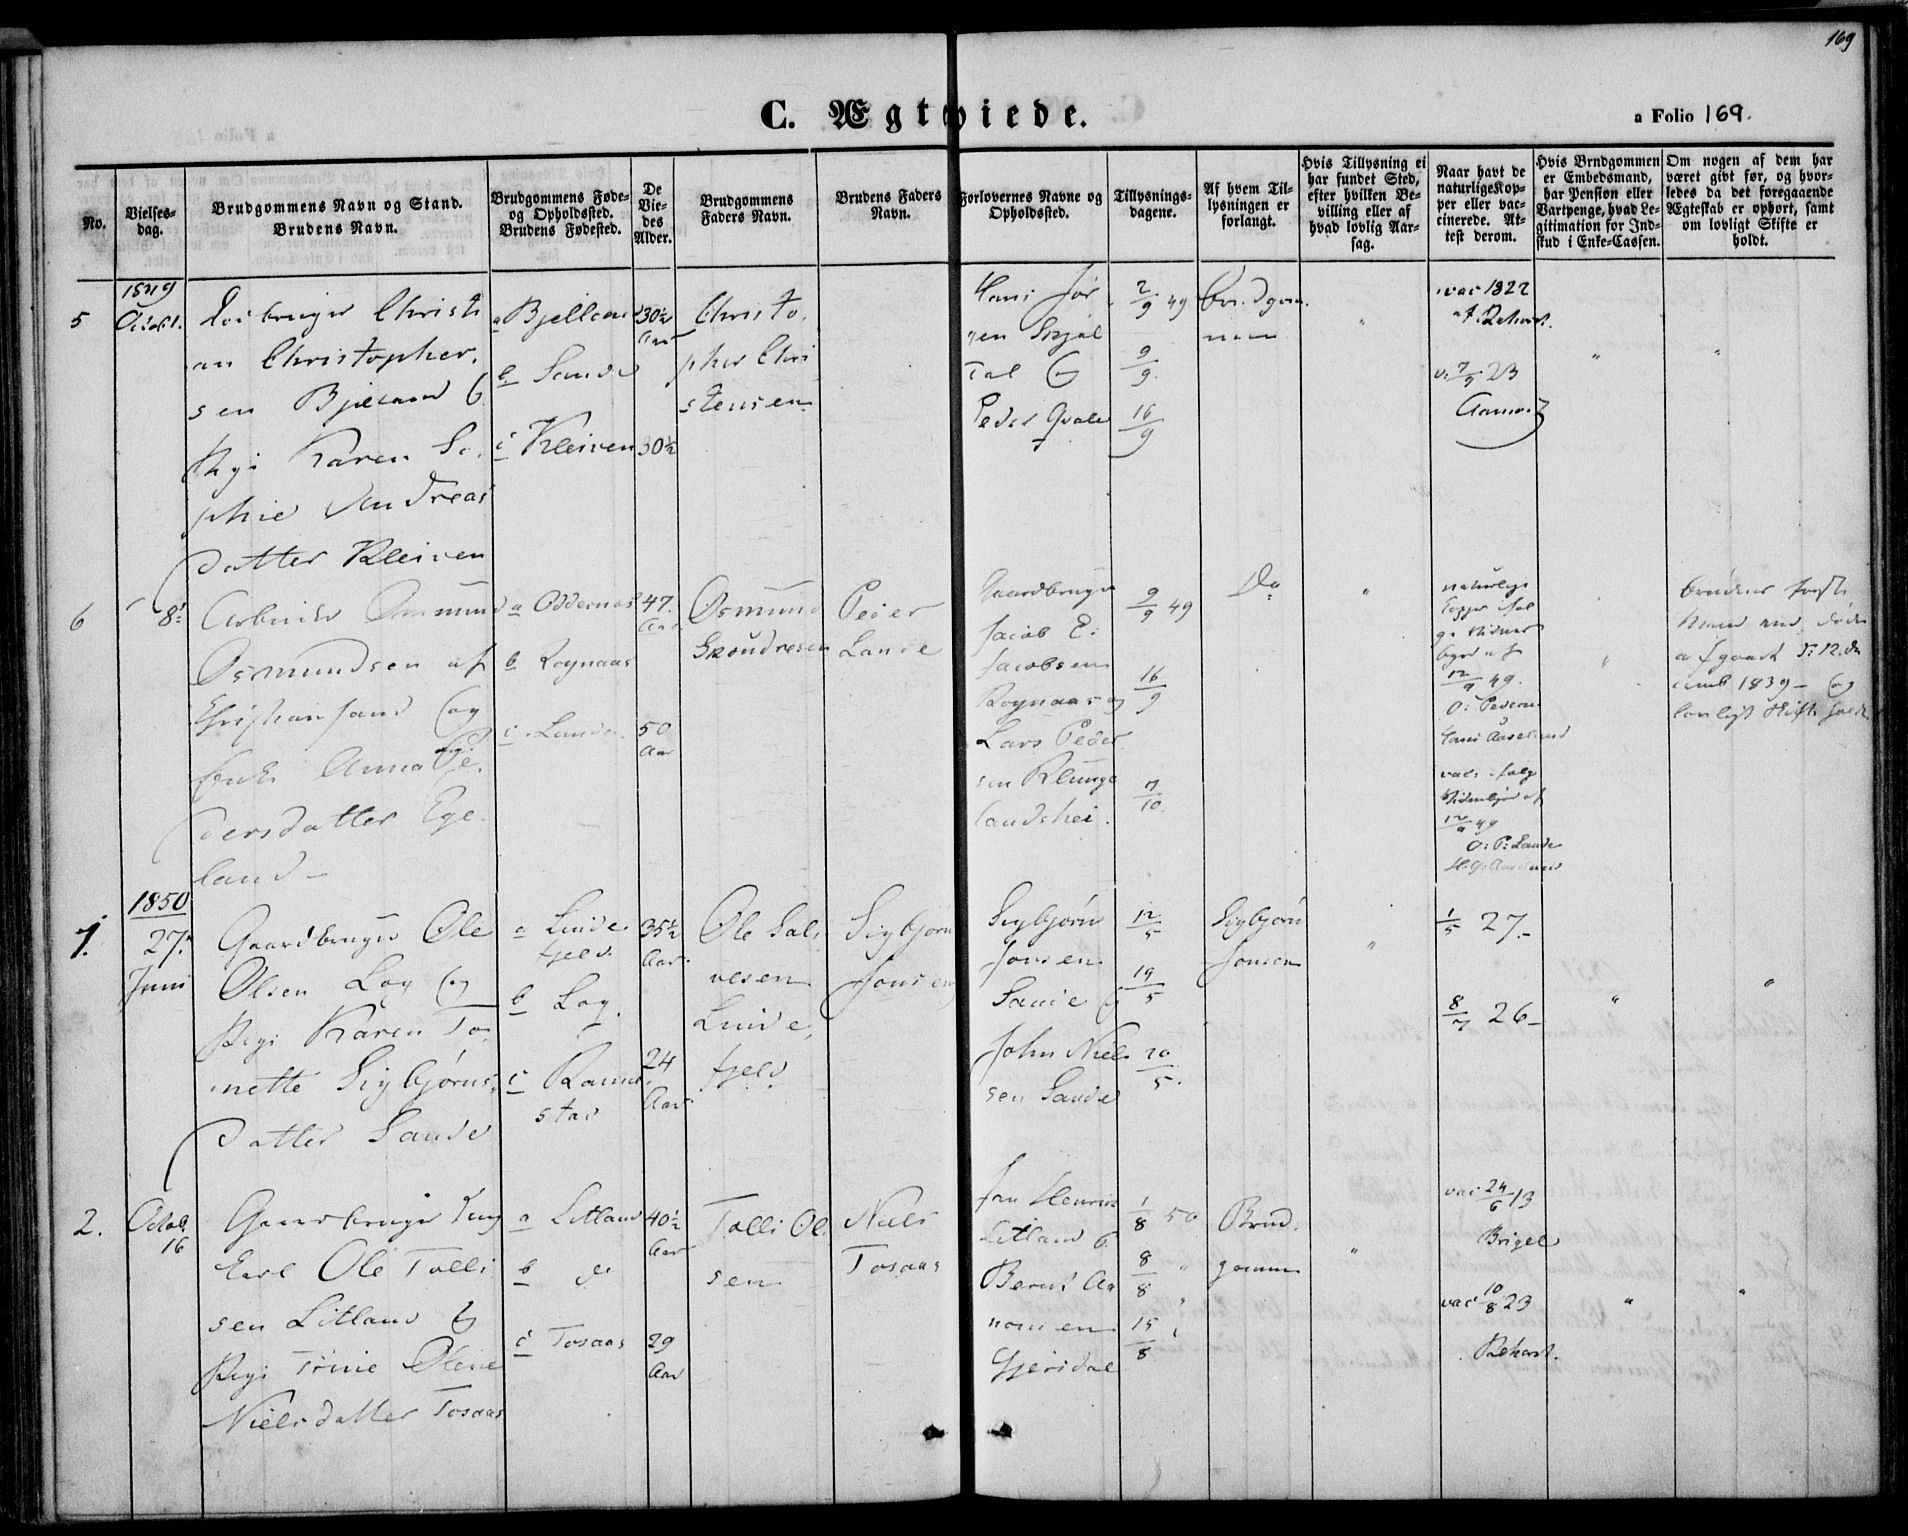 169
C. Ægtviede.
a Folio 169.
No.
Vielses-
dag.
Brudgommens Navn og Stand.
Brudens Navn.
Brudgommens Føde-
og Opholdssted.
Brudens Fødested.
De
Vie-
des
Alder.
Brudgommens
Faders Navn.
Brudens Faders
Navn.
Forlovernes Navne og
Opholdssted.
Tillysnings-
dagene.
Af hvem Til-
lysningen er
forlangt.
Hvis Tillysning ei
har fundet Sted,
efter hvilken Be-
villing eller af
hvad lovlig Aar-
sag.
Naar havt de
naturlige Kop-
per eller vac-
cinerede. At-
test derom.
Hvis Brudgommen
er Embedsmand,
har Pension eller
Vartpenge, hvad Le-
gitimation for Ind-
skud i Enke-Cassen.
Om nogen af dem har
været givt før, og hvor-
ledes da det foregaaende
Ægteskab er ophørt, samt
om lovligt Skifte er
holdt.
1849
5
Octob 1.
Christi
an Christopher.
sen
Pigi Karen So.
phie Andreas
datter Kleiven
b Sande
c Kleiven
30½
Aar
30½
Christo.
pher Chri
stensen
Hans Jør
gen
tal
Peder Qvale
2/9 49
9/9.
16/9
Brudgom
men
"
vac 1822
af Rehart.
v. 7/9 23
"
"
6
8:
Arbeider Osmund
Osmundsen af
Christiansand og
Enke Anna Pe.
dersdatter Ege.
land -
a Oddernæs
b Rognaas
c Lande.
47.
Aar
50
Aar
Osmund
Peder
Lande
Gaardbruger
Jacob E:
Jacobsen
Rognaas og
Lars Peder
sen Klunge
landshei.
9/9 49
16/9
7/10.
Do
"
naturlige
12/9 49.
O: Pedersen
12/9 49
O: P: Lande
"
brudens første
Mand
1839 - og
1850
1.
27.
Juni
Gaardbruger Ole
Olsen Log og
Pigi Karen To.
nette Sigbjørns.
datter Sande
a Linde
fjeld.
b Log.
c
stad
35½
Aar.
24
Aar
Ole Sal.
vesen
Linde,
fjeld.
Sigbjørn
Jonsen
Sigbjørn
Jonsen
Sande
John Niel.
sen Sande
12/5
19/5
20/5.
Sigbjørn
Jonsen
"
1/5 27.-
8/7 26-
"
"
2.
Octob.
16
Gaardbruger Ung
Karl Ole Tolli
sen Litland
Pigi Trine Oline
Nielsdatter Tosaas
a Litland
b do
c Tosaas
40½
Aar
29
Aar
Tolli Ol.
sen
Niels
Tosaas
Jan Henrik
Litland
Bernt Aa
nonsen
Gjerdal
1/8 50
8/8 "
15/8 "
Brud.
gommen
"
vac 24/6 13
vac 10/8 23
Rehart.
"
"